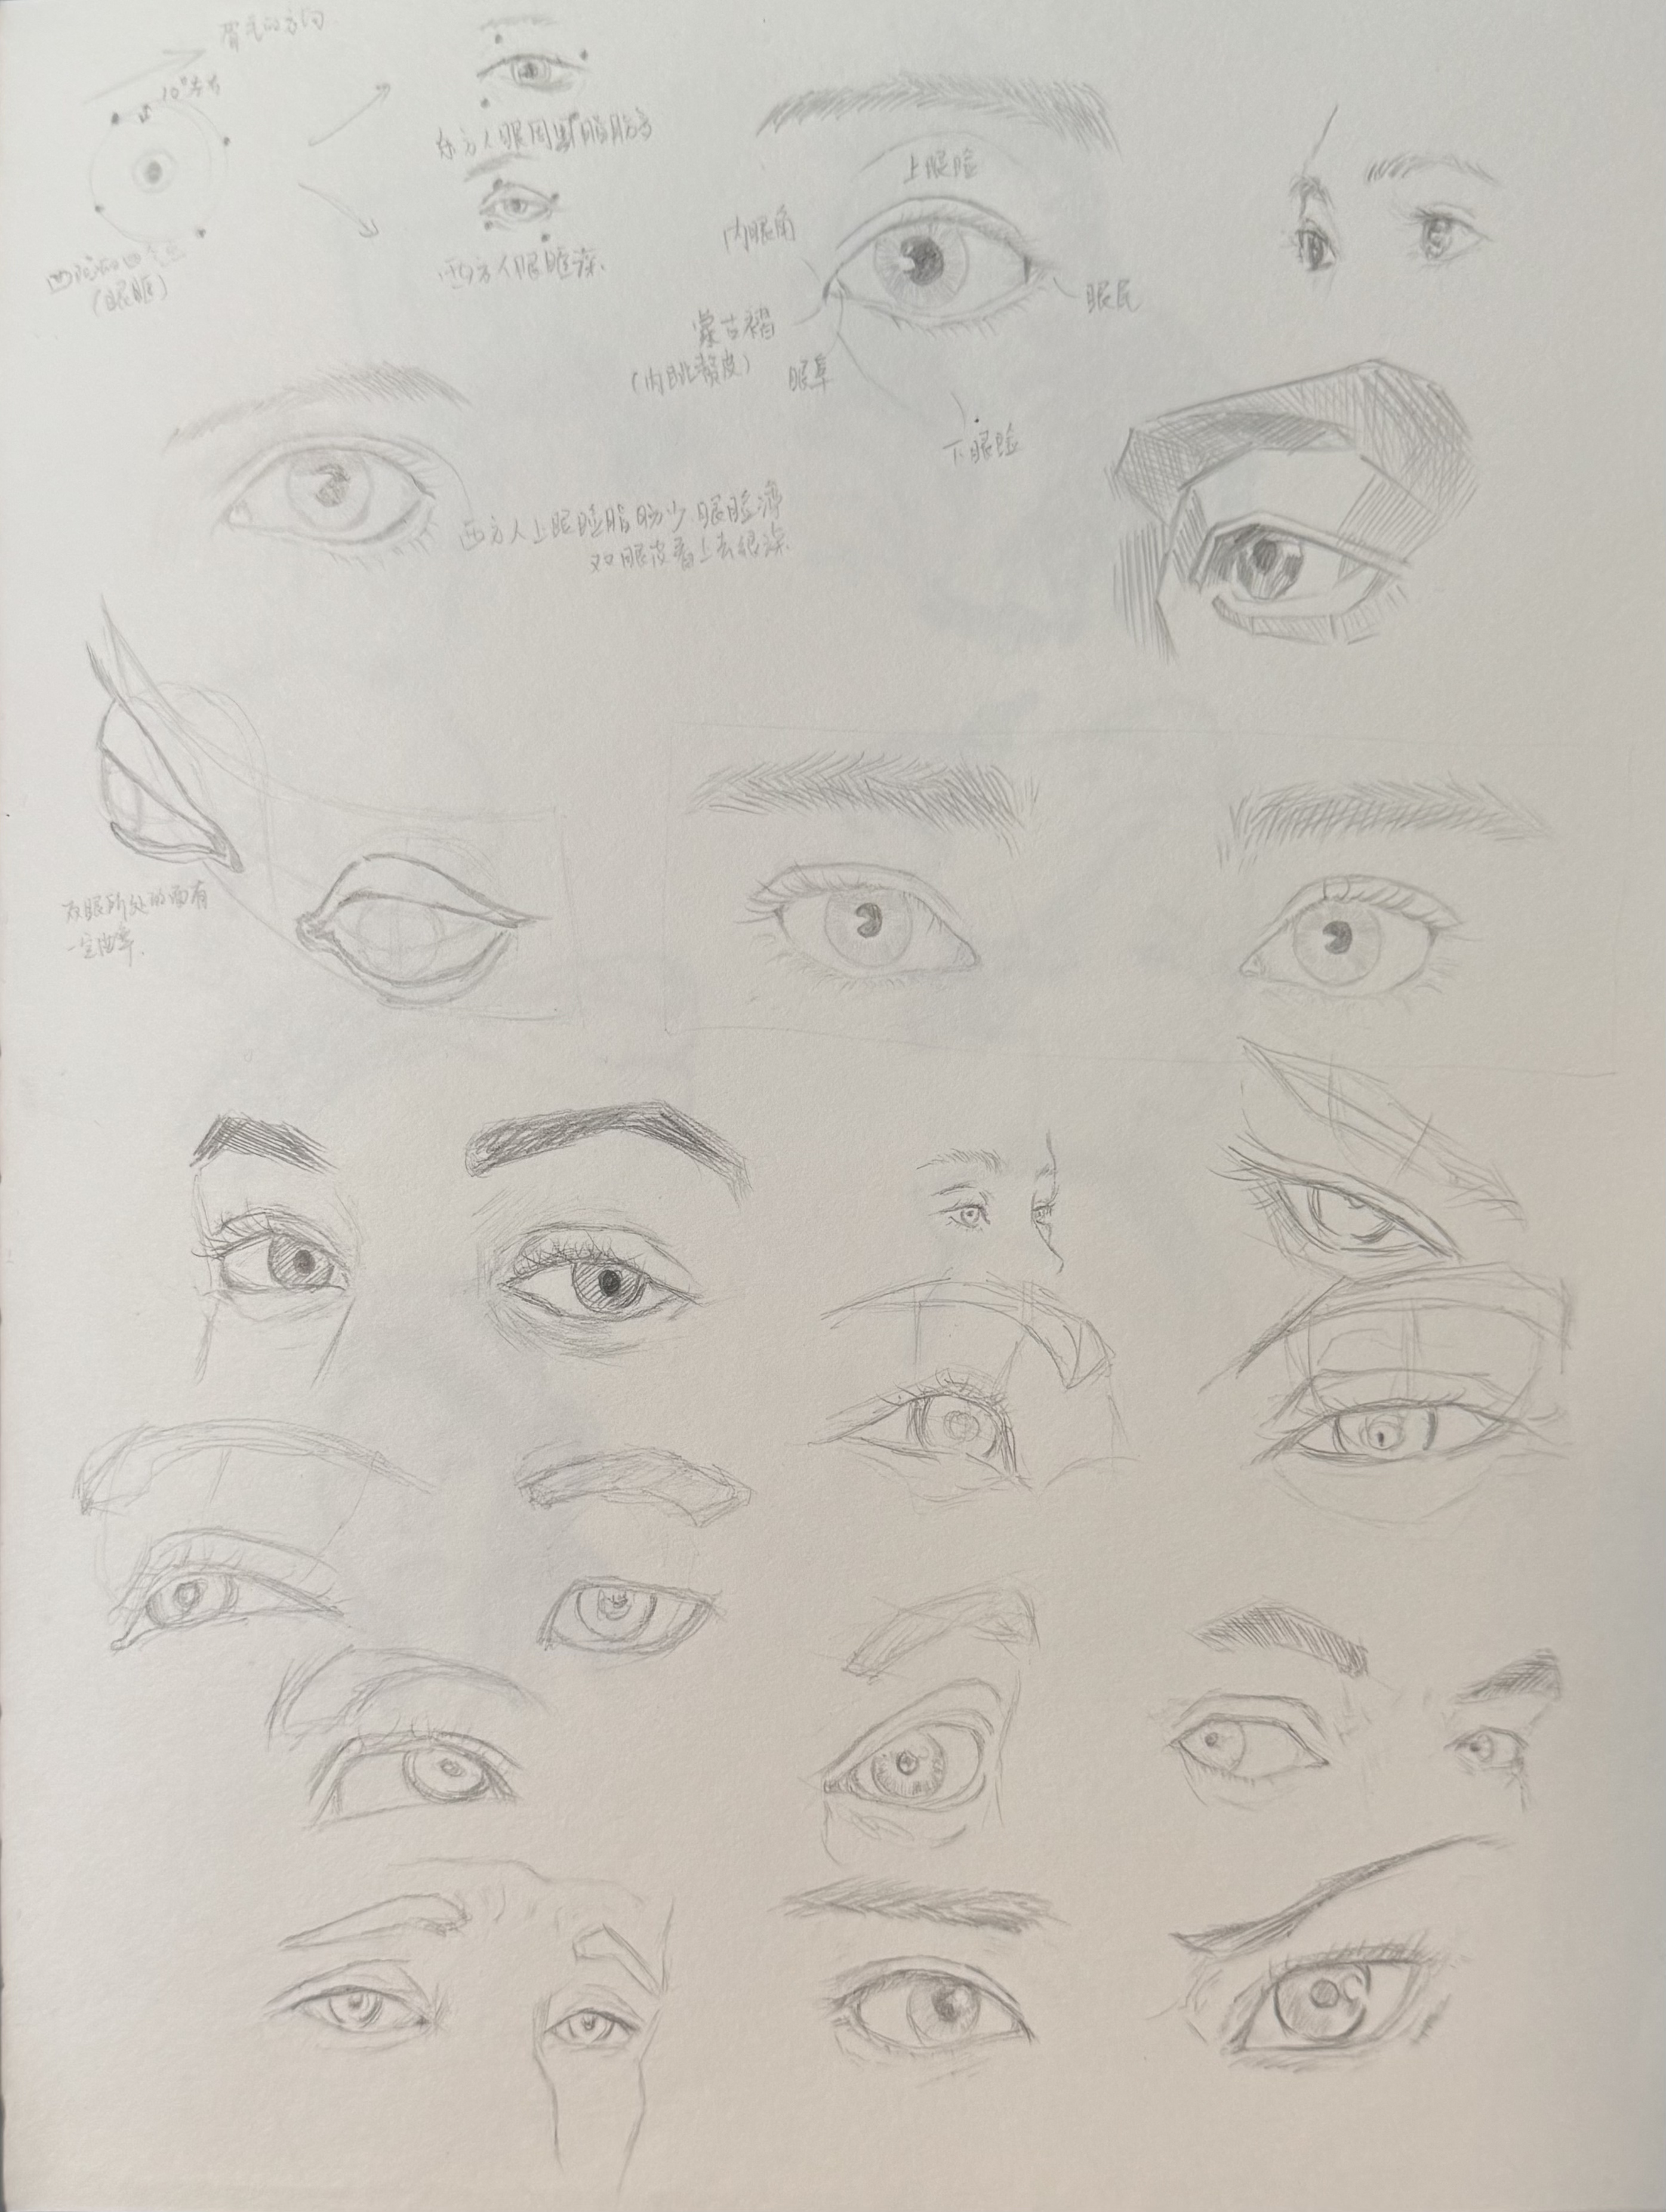 眉毛的方向
10°左右
(眼眶)
东方人眼周围脂肪多
西方人眼眶深
上眼睑
内眼角
眼尾
蒙古褶
(内眦赘皮)
眼阜
下眼睑
西方人上眼睑脂肪少 眼睑薄
双眼皮看上去很深
双眼所处的面有
一定曲率.